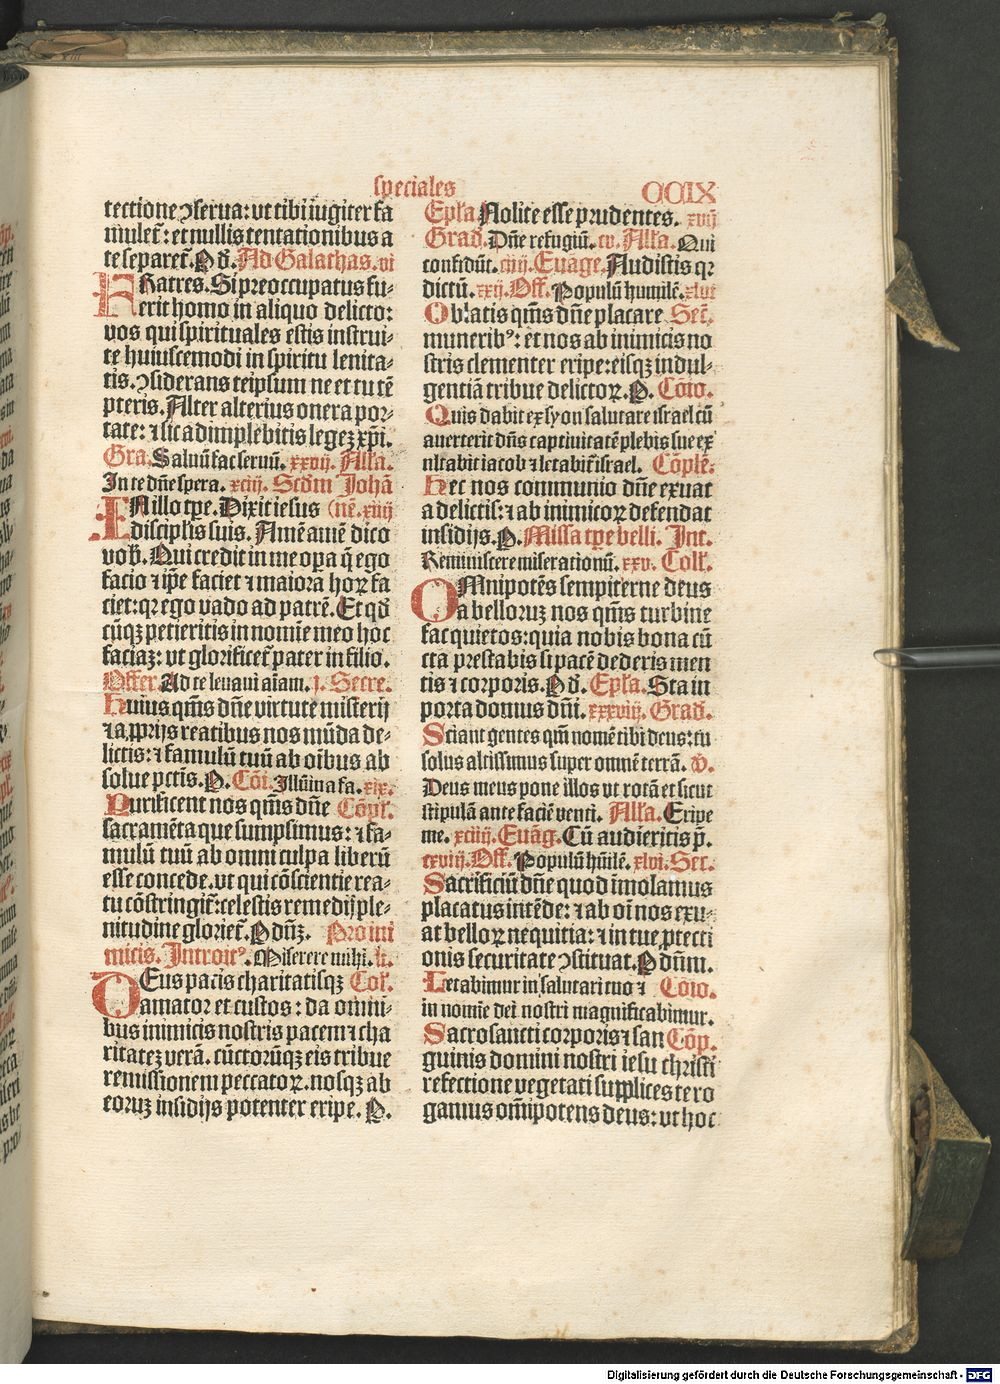 speciales CCIX
tectione ꝯserua: vt tibi iugiter fa
mulet᷑: et nullis tentationibus a
te separet᷑. P d̄. Ad Galathas. vi
FRatres. Si preoccupatus fu-
erit homo in aliquo delicto:
vos qui spirituales estis instrui-
te huiuscemodi in spiritu lenita-
tis. ꝯsiderans teipsum ne et tu tē
pteris. Alter alterius onera por-
tate: ⁊ sic adimplebitis legeꝫ xp̄i.
Gra. Saluū fac seruū. xxvij. Alla.
In te dn̄e spera. xciij. Scd̄m Johā
IN illo tp̄e. Dixit iesus (nē. xiiij
discipl̄is suis. Amē amē dico
vob̄. Qui credit in me oꝑa q̄ ego
facio ⁊ ip̄e faciet ⁊ maiora hoꝝ fa
ciet: qꝛ ego vado ad patrē. Et qd̄
cūqꝫ petieritis in nomīe meo hoc
faciaꝫ: vt glorificet᷑ pater in filio.
Offer. Ad te leuaui aīam. j. Secre.
Huius qm̄s dn̄e virtute misterij
⁊ a ꝓprijs reatibus nos mūda de-
lictis: ⁊ famulū tuū ab oībus ab
solue pctīs. P. Cōi. Illūina fa. xix.
Purificent nos qm̄s dn̄e Cōpl̄.
sacramēta que sumpsimus: ⁊ fa-
mulū tuū ab omni culpa liberū
esse concede. vt qui cōscientie rea-
tu cōstringit᷑: celestis remedij ple-
nitudine gloriet᷑. P dn̄ꝫ. Pro ini
micis. Introitꝰ. Miserere mihi. li.
DEus pacis charitatisqꝫ Col̄.
amator et custos: da omni-
bus inimicis nostris pacem ⁊ cha
ritateꝫ verā. cūctorūqꝫ eis tribue
remissionem peccatoꝝ. nosqꝫ ab
eoruꝫ insidijs potenter eripe. P.
Ep̄la. Nolite esse prudentes. xvij
Grad. Dn̄e refugiū. cv. Alla. Qui
confidūt. ciiij. Euāge. Audistis qꝛ
dictū. xxij. Off. Populū humilē. xlvi
Oblatis qm̄s dn̄e placare Sec̄.
muneribꝰ: et nos ab inimicis no
stris clementer eripe: eisqꝫ indul-
gentiā tribue delictoꝝ. P. Cōio.
Quis dabit ex syon salutare israel cū
auerterit dn̄s captiuitatē plebis sue ex
ultabit iacob ⁊ letabit᷑ israel. Cōplē.
Hec nos communio dn̄e exuat
a delictis: ⁊ ab inimicoꝝ defendat
insidijs. P. Missa tp̄e belli. Int.
Reminiscere miserationū. xxv. Coll̄.
OMnipotēs sempiterne deus
a belloruꝫ nos qm̄s turbine
fac quietos: quia nobis bona cū
cta prestabis si pacē dederis men
tis ⁊ corporis. P d̄. Ep̄la. Sta in
porta domus dn̄i. xxxviij. Grad.
Sciant gentes qm̄ nomē tibi deus: tu
solus altissimus super omnē terrā. v̄.
Deus meus pone illos vt rotā et sicut
stipulā ante faciē venti. Alla. Eripe
me. xciiij. Euāg. Cū audieritis p̄.
cxviij. Off. Populū hūilē. xlvi. Sec.
Sacrificiū dn̄e quod īmolamus
placatus intēde: ⁊ ab oī nos exu-
at belloꝝ nequitia: ⁊ in tue ꝓtecti
onis securitate ꝯstituat. P dn̄um.
Letabimur in salutari tuo ⁊ Cōio.
in nomīe dei nostri magnificabimur.
Sacrosancti corporis ⁊ san Cōp.
guinis domini nostri iesu christi
refectione vegetati supplices te ro
gamus om̄ipotens deus: vt hoc
Digitalisierung gefördert durch die Deutsche Forschungsgemeinschaft - DFG